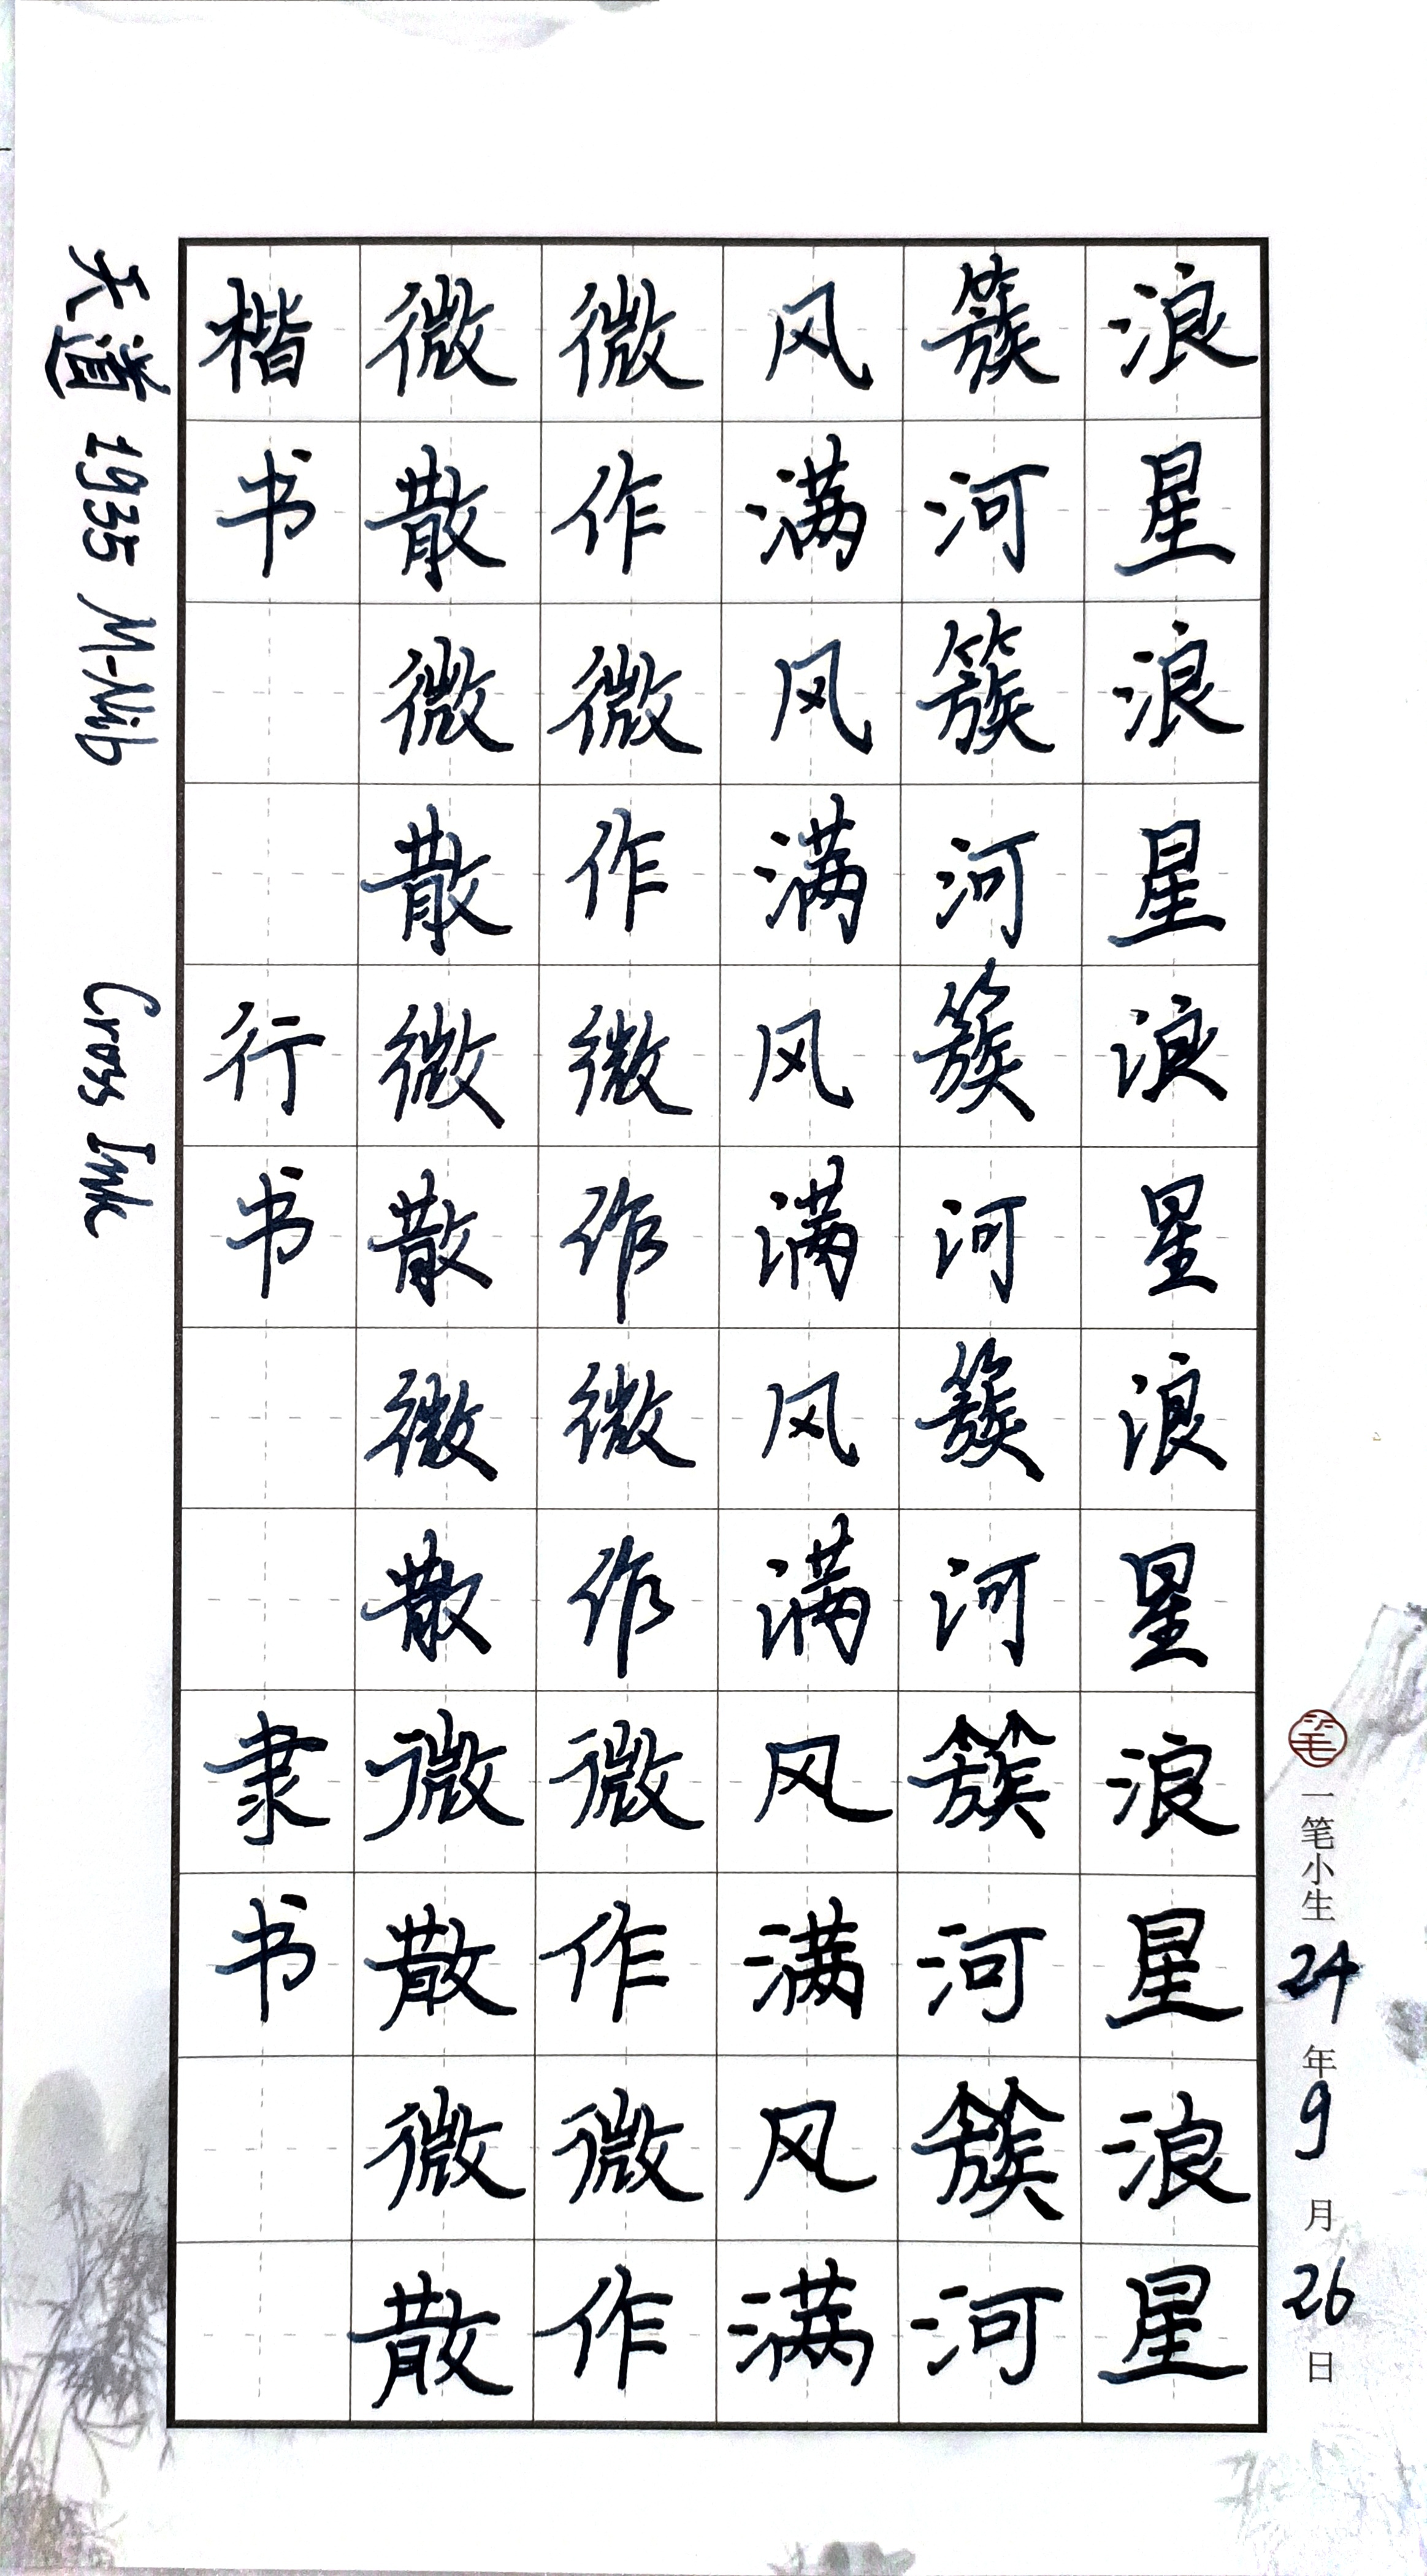 浪星浪星浪星浪星浪星浪星
簇河簇河簇河簇河簇河簇河
风满风满风满风满风满风满
微作微作微作微作微作微作
微散微散微散微散微散微散
楷书 行书 隶书
天道 1935 M-Nib Cross Ink
笔 一笔小生 24年9月26日